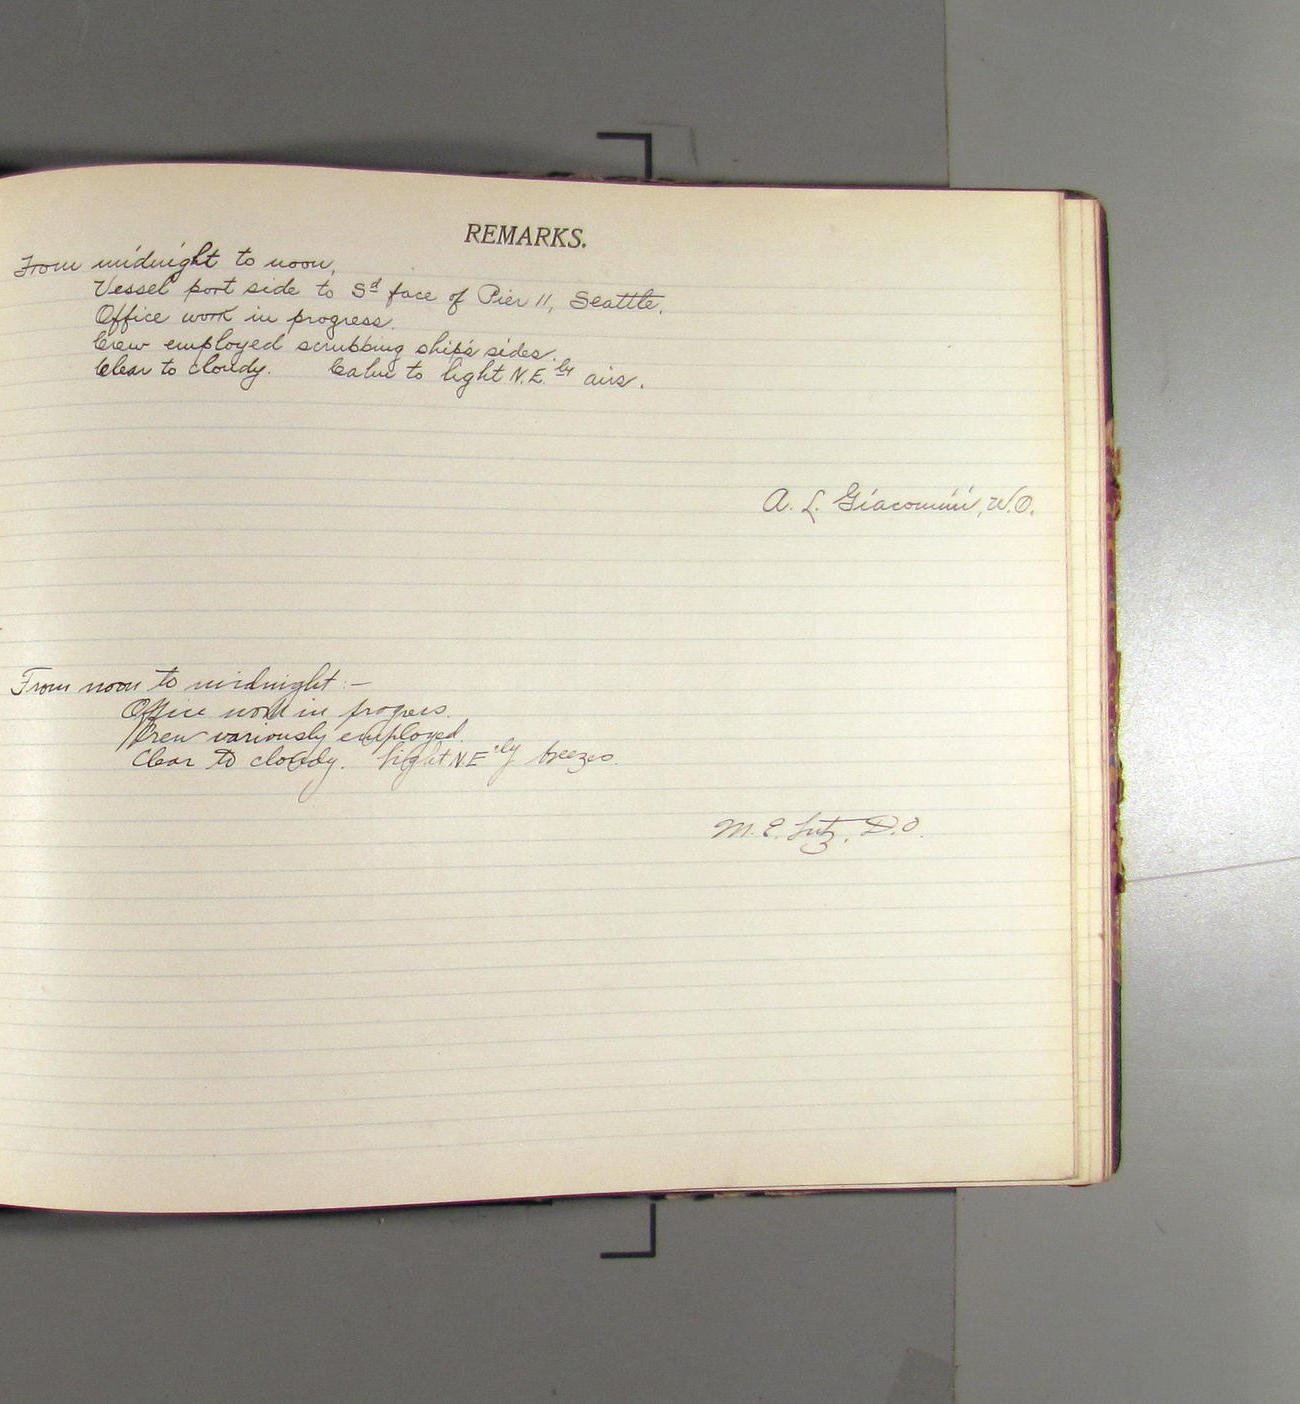 REMARKS.
From midnight to noon,
Vessel port side to Sd face of Pier 11, Seattle.
Office work in progress.
Crew employed scrubbing ship's sides.
Clear to cloudy. Calm to light N.E. ly airs.
A. L. Giacomini, W.O.
From noon to midnight:—
Office work in progress.
Crew variously employed.
Clear to cloudy. Light N.E'ly breezes.
M. E. Lutz, D.O.